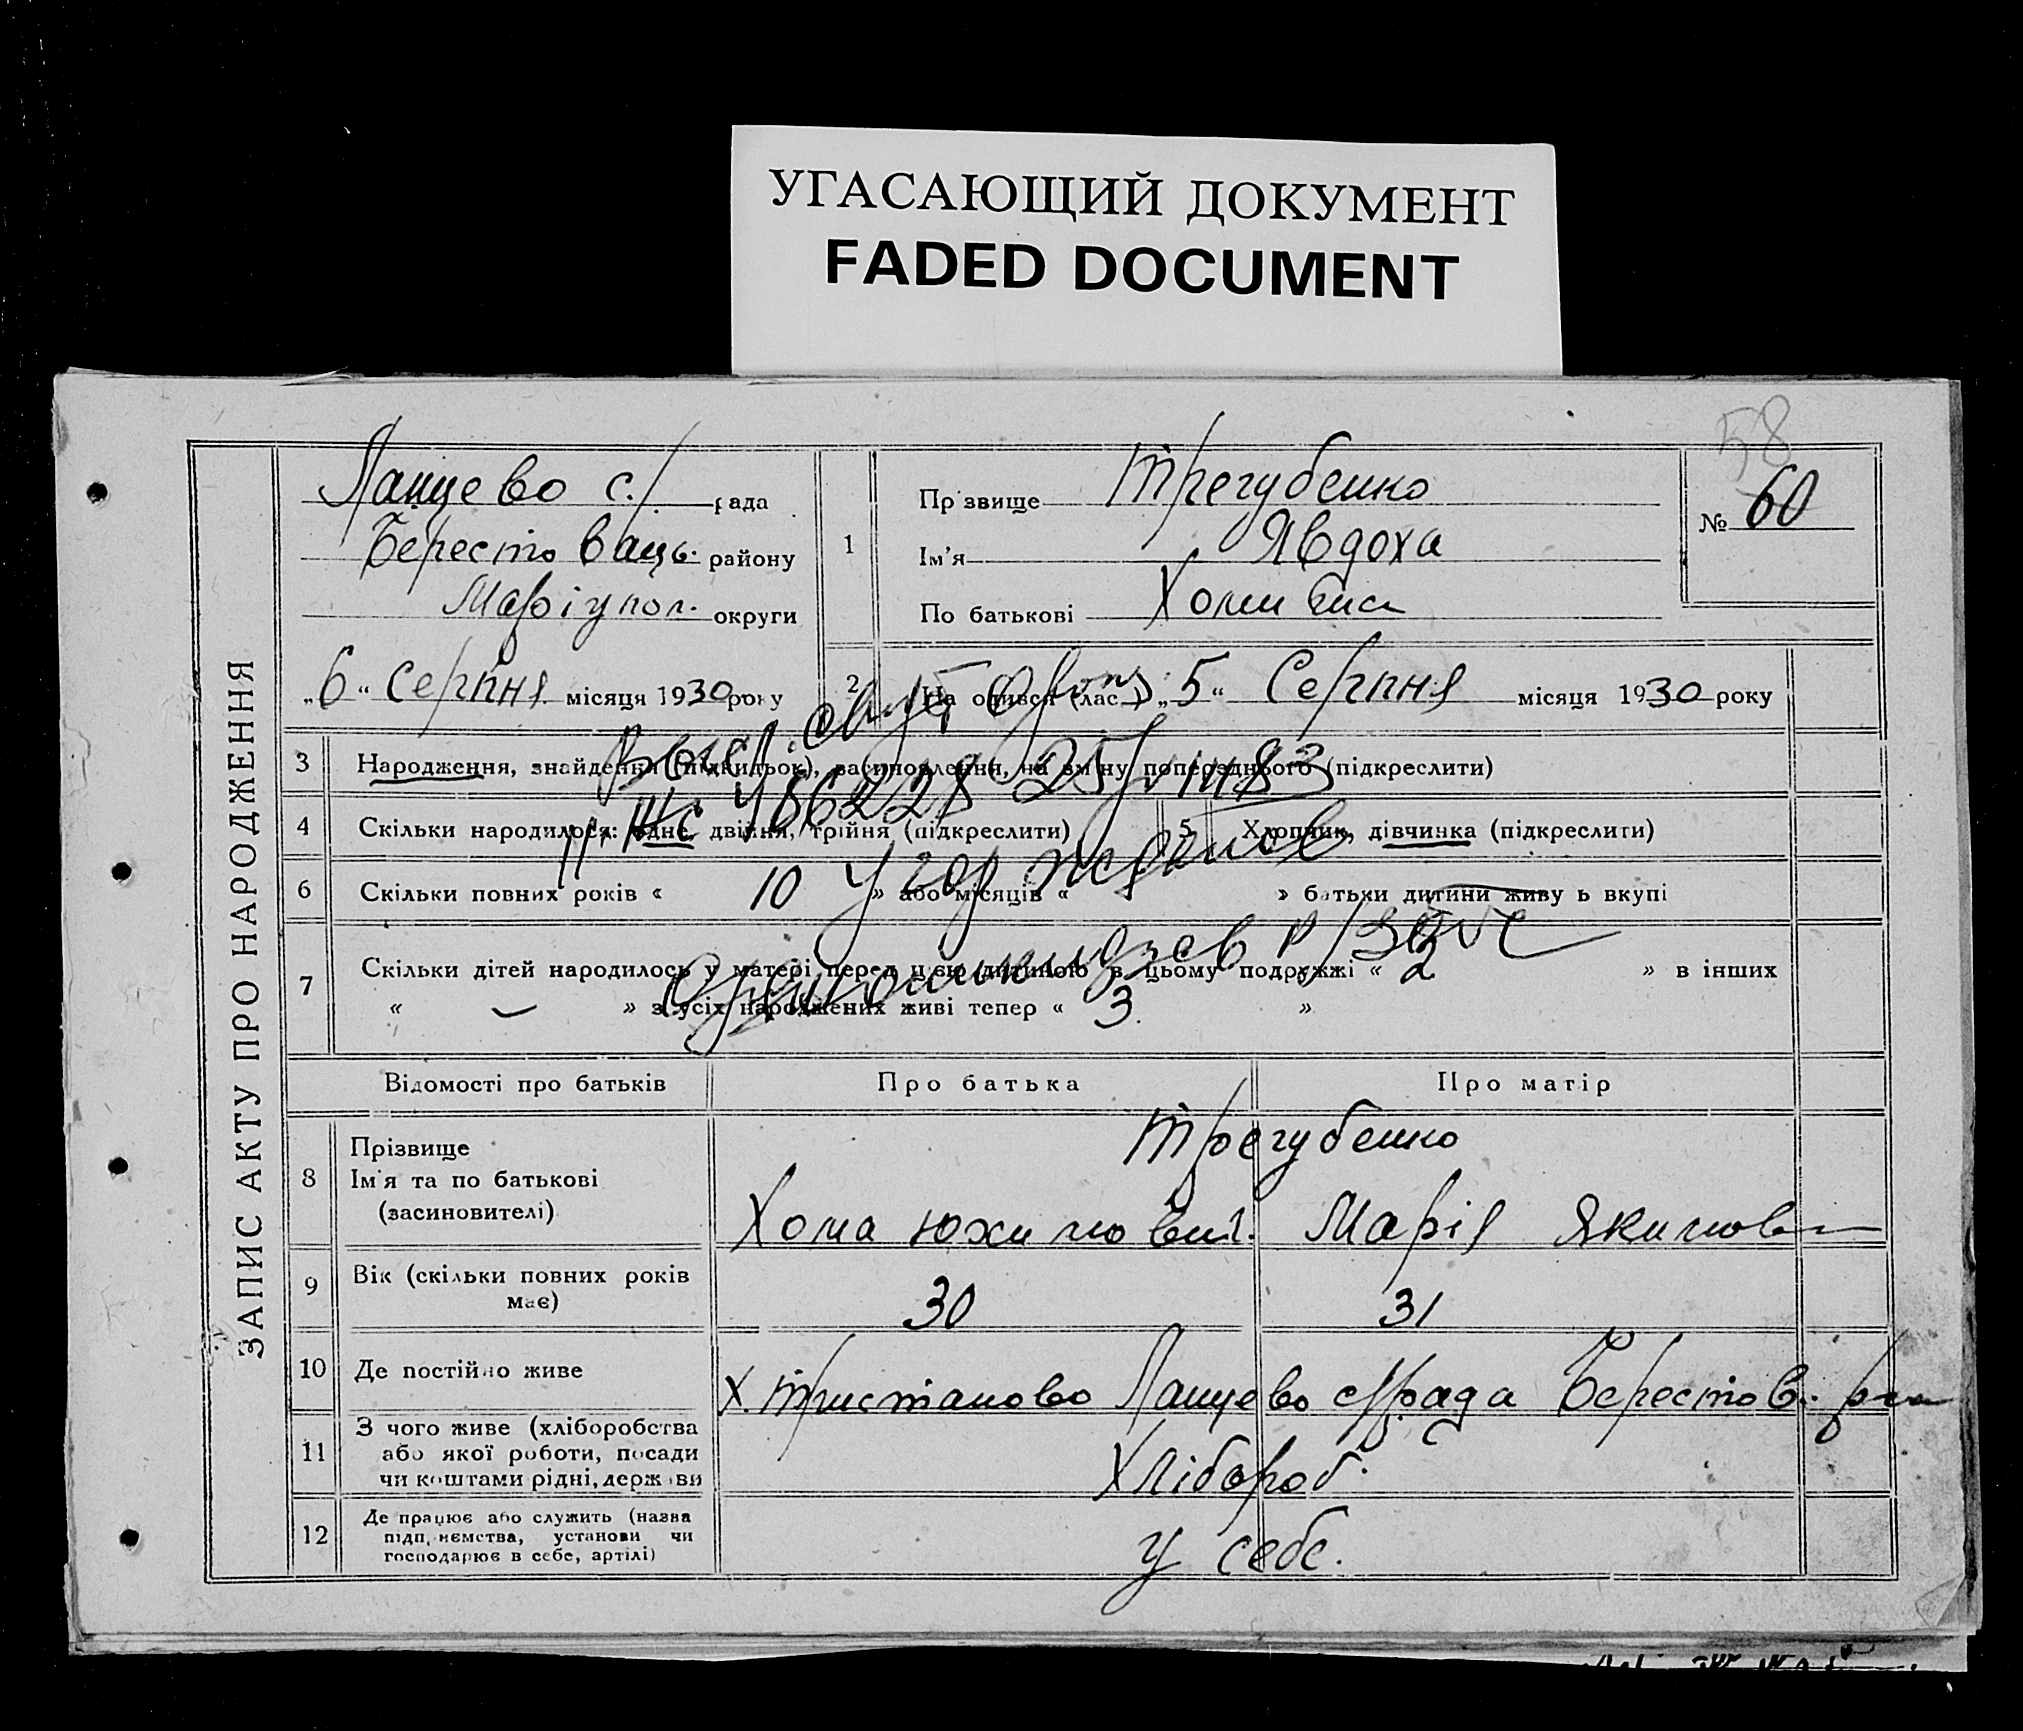 УГАСАЮЩИЙ ДОКУМЕНТ
FADED DOCUMENT
58
ЗАПИС АКТУ ПРО НАРОДЖЕННЯ
Ланцево с./ рада
Берестовацьк. району
Маріупол. округи
„6“ Серпня місяця 1930 року
1
Прізвище Трегубенко
Ім’я Явдоха
По батькові Хомівна
№ 60
2 На одився (лас) „5“ Серпня місяця 1930 року
3 Народження, знайдення (підкидьок), засиновлення, на зміну попереднього (підкреслити)
4 Скільки народилося: одне, двійня, трійня (підкреслити)
5 Хлопчик, дівчинка (підкреслити)
486228 25
6 Скільки повних років « 10 » або місяців « » батьки дитини живуть вкупі
7 Скільки дітей народилось у матері перед цією дитиною в цьому подружжі « 2 » в інших
« – » з усіх народжених живі тепер « 3 »
Відомості про батьків Про батька Про матір
8 Прізвище
Ім’я та по батькові
(засиновителі)
Трегубенко
Хома Юхимович. Марія Якимовна
9 Вік (скільки повних років
має)
30 31
10 Де постійно живе
х. Тристаново Ланцево с/рада Берестов. р-на
11 З чого живе (хліборобства
або якої роботи, посади
чи коштами рідні, держави
Хлібороб.
12 Де працює або служить (назва
підприємства, установи чи
господарює в себе, артілі)
у себе.